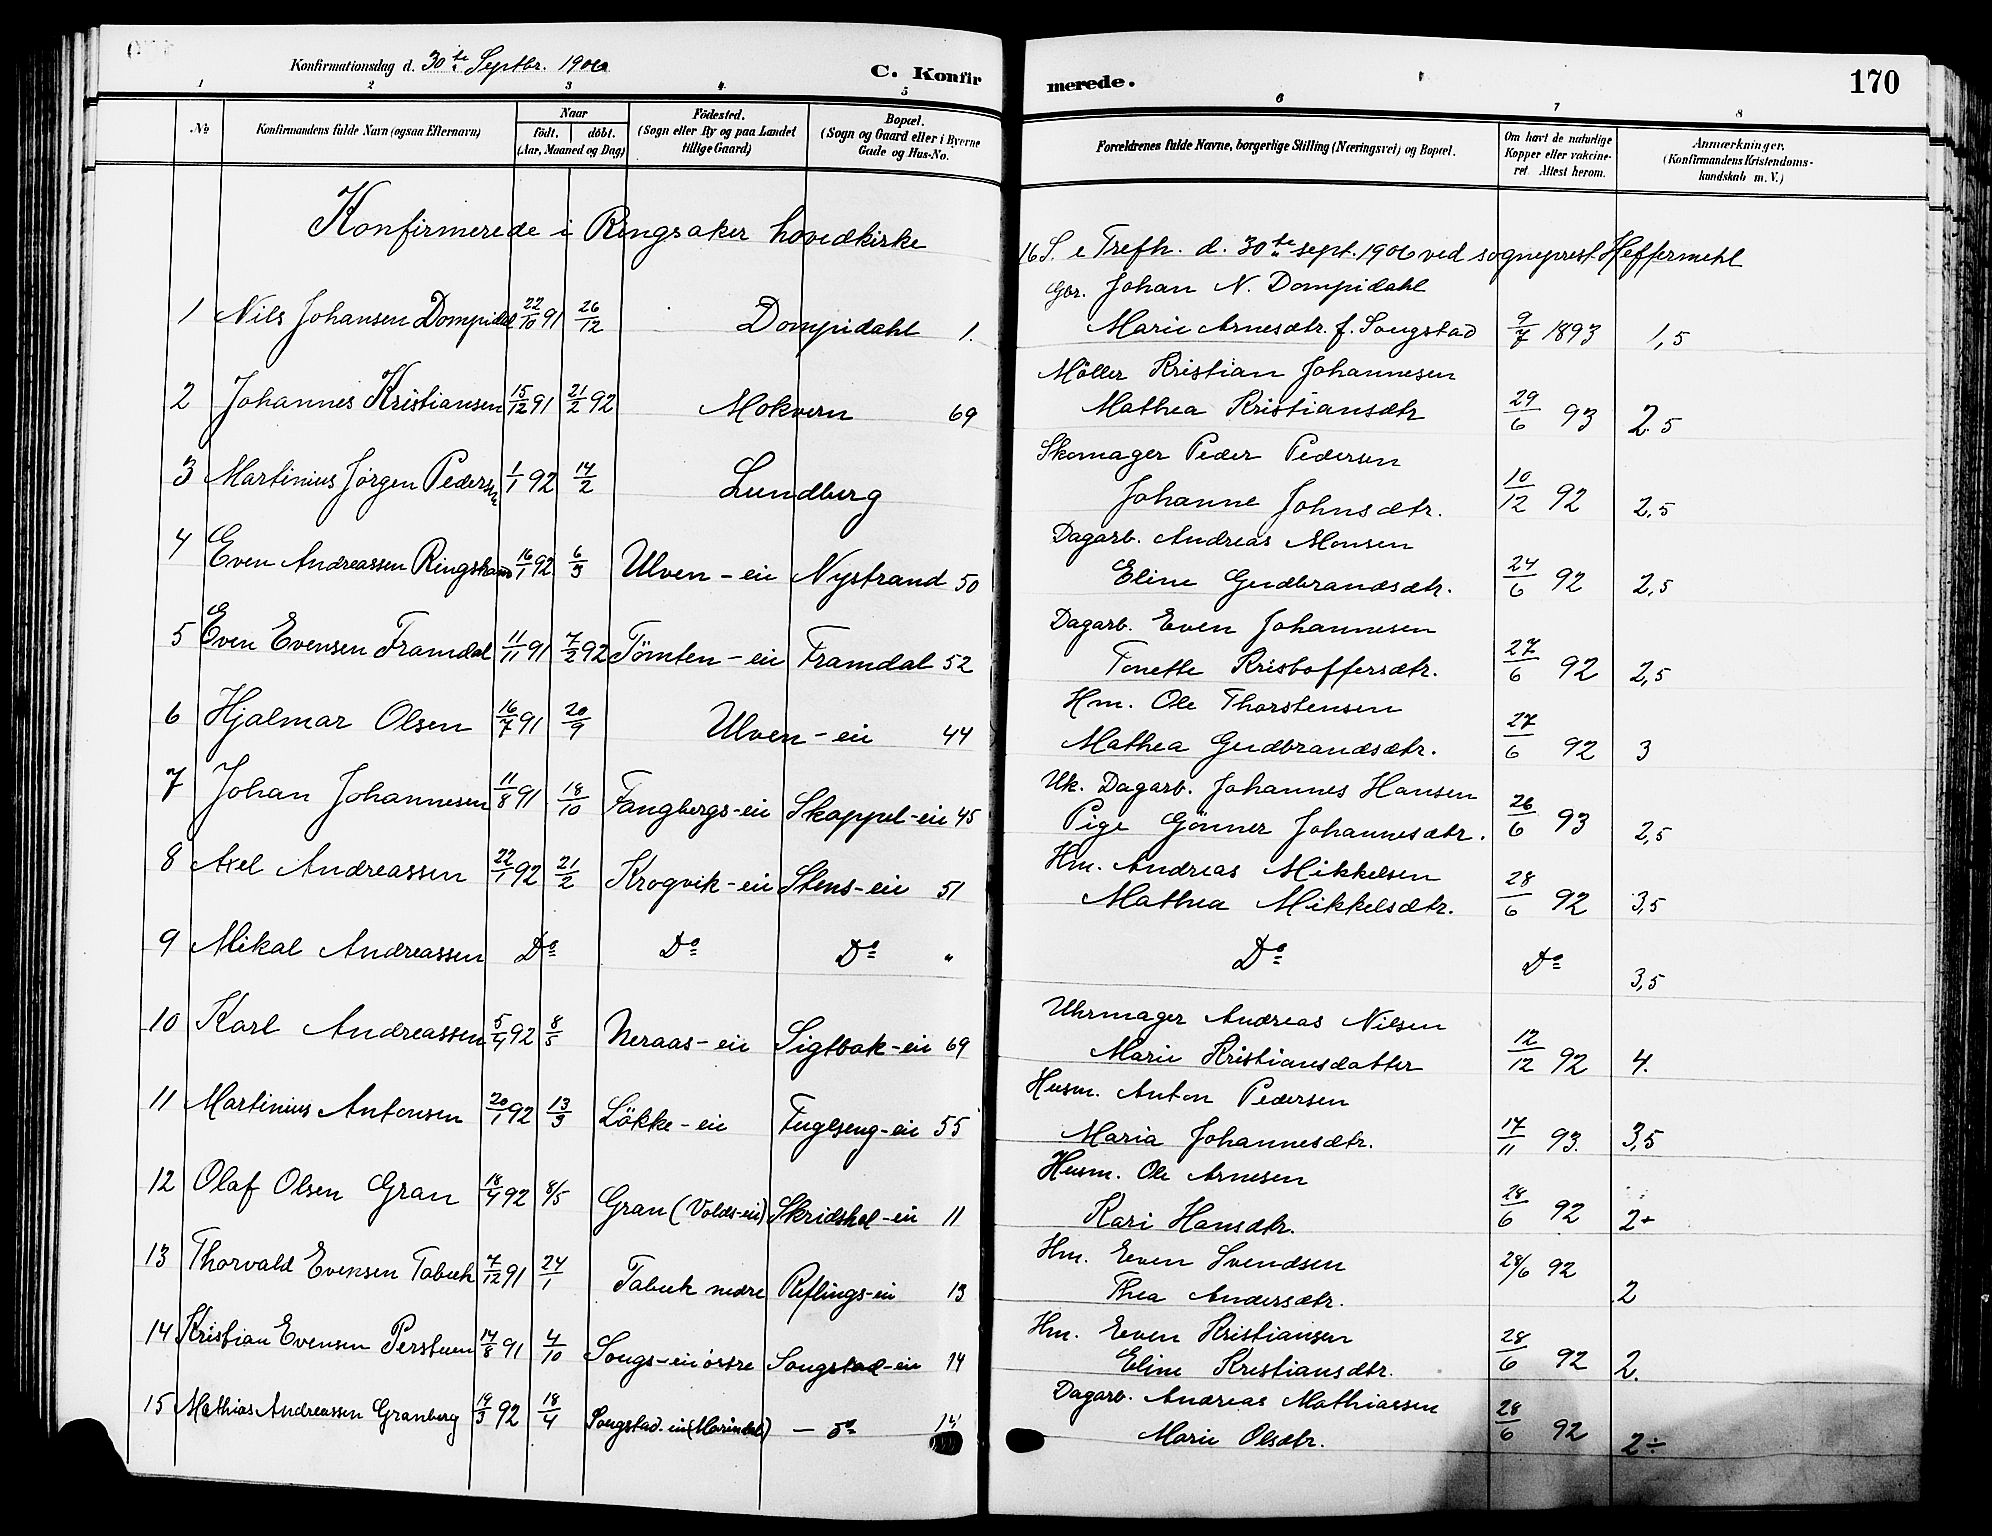 Konfirmationsdag d. 30te Septbr. 1906
C. Konfirmerede.
170
1 2 3 4 5 6 7 8
No
Konfirmandens fulde Navn (ogsaa Efternavn)
Naar
födt. döbt.
(Aar, Maaned og Dag)
Födested.
(Sogn eller By og paa Landet
tillige Gaard)
Bopæl.
(Sogn og Gaard eller i Byerne
Gade og Hus-No.
Forældrenes fulde Navne, borgerlige Stilling (Næringsvei) og Bopæl.
Om havt de naturlige
Kopper eller vakcine-
ret. Attest herom.
Anmærkninger.
(Konfirmandens Kristendoms-
kundskab m. V.)
Konfirmerede i Ringsaker hovedkirke 16 S. e Trefh. d. 30te sept. 1906 ved sogneprest Heffermehl
Gbr. Johan N. Dompidahl
1 Nils Johansen Dompidal 22/10 91 26/12 Dompidahl 1. Marie Arnesdtr. f. Songstad 9/7 1893 1,5
Möller Kristian Johannesen
2 Johannes Kristiansen 15/12 91 21/2 92 Mokvern 69 Mathea Kristiansdtr 29/6 93 2.5
Skomager Peder Pedersen
3 Martinius Jörgen Pedersen 1/1 92 14/2 Lundberg Johanne Johnsdtr. 10/12 92 2,5
Dagarb. Andreas Monsen
4 Even Andreassen Ringstrand 16/1 92 6/3 Ulven-eie Nystrand 50 Eline Gudbrandsdtr. 24/6 92 2,5
Dagarb. Even Johannesen
5 Even Evensen Framdal 11/11 91 7/2 92 Tömten-eie Framdal 52 Tonette Kristoffersdtr. 27/6 92 2,5
Hm. Ole Thorstensen
6 Hjalmar Olsen 16/7 91 20/9 Ulven-eie 44 Mathea Gudbrandsdtr. 27/6 92 3
Uk. Dagarb. Johannes Hansen
7 Johan Johannesen 11/8 91 18/10 Fangbergs-eie Skappel-eie 45 Pige Gönner Johannesdtr. 26/6 93 2,5
Hm. Andreas Mikkelsen
8 Axel Andreassen 22/1 92 21/2 Krogvik-eie Stens-eie 51 Mathea Mikkelsdtr. 28/6 92 3,5
9 Mikal Andreassen Do Do Do " Do Do 3,5
Uhrmager Andreas Nilsen
10 Karl Andreassen 5/4 92 8/5 Neraas-eie Sigtbak-eie 69 Marie Kristiansdatter 12/12 92 4.
Husm. Anton Pedersen
11 Martinius Antonsen 20/1 92 13/3 Lökke-eie Fuglseng-eie 55 Maria Johannesdtr. 17/11 93. 3,5
Husm. Ole Arnesen
12 Olaf Olsen Gran 18/4 92 8/5 Gran (Volds-eie) Skridshol-eie 11 Kari Hansdtr. 28/6 92 2+
Hm. Even Svendsen
13 Thorvald Evensen Tabuk 7/12 91 24/1 Tabuk nedre Reflings-eie 13 Thea Andersdtr. 28/6 92 2
Hm. Even Kristiansen
14 Kristian Evensen Perstuen 14/8 91 4/10 Songs-eie östre Songstad-eie 14 Eline Kristiansdtr. 28/6 92 2.
Dagarb. Andreas Mathiassen
15 Mathias Andreassen Granberg 19/3 92 18/4 Songstad-eie (Marindal) — do 14 Marie Olsdtr. 28/6 92 2÷